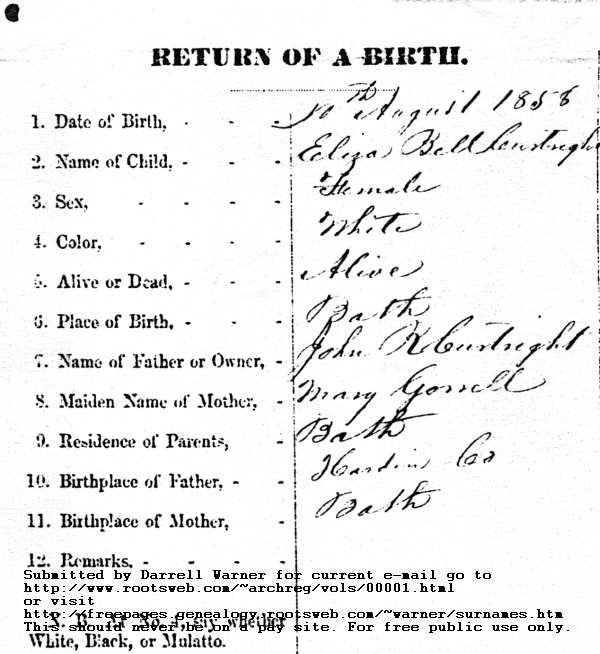 RETURN OF A BIRTH.
1. Date of Birth, - - - 10th August 1858
2. Name of Child, - - - Eliza Bell Curtright
3. Sex, - - - - Female
4. Color, - - - - White
5. Alive or Dead, - - - Alive
6. Place of Birth, - - - Bath
7. Name of Father or Owner, - John R Curtright
8. Maiden Name of Mother, - Mary Gorrell
9. Residence of Parents, - Bath
10. Birthplace of Father, - - Hardin Co
11. Birthplace of Mother, - Bath
12. Remarks, - - - -
Submitted by Darrell Warner for current e-mail go to
http://www.rootsweb.com/~archreg/vols/00001.html
or visit
http://freepages.genealogy.rootsweb.com/~warner/surnames.htm
N. B. At No. 4, say whether
This should never be on a pay site. For free public use only.
White, Black, or Mulatto.